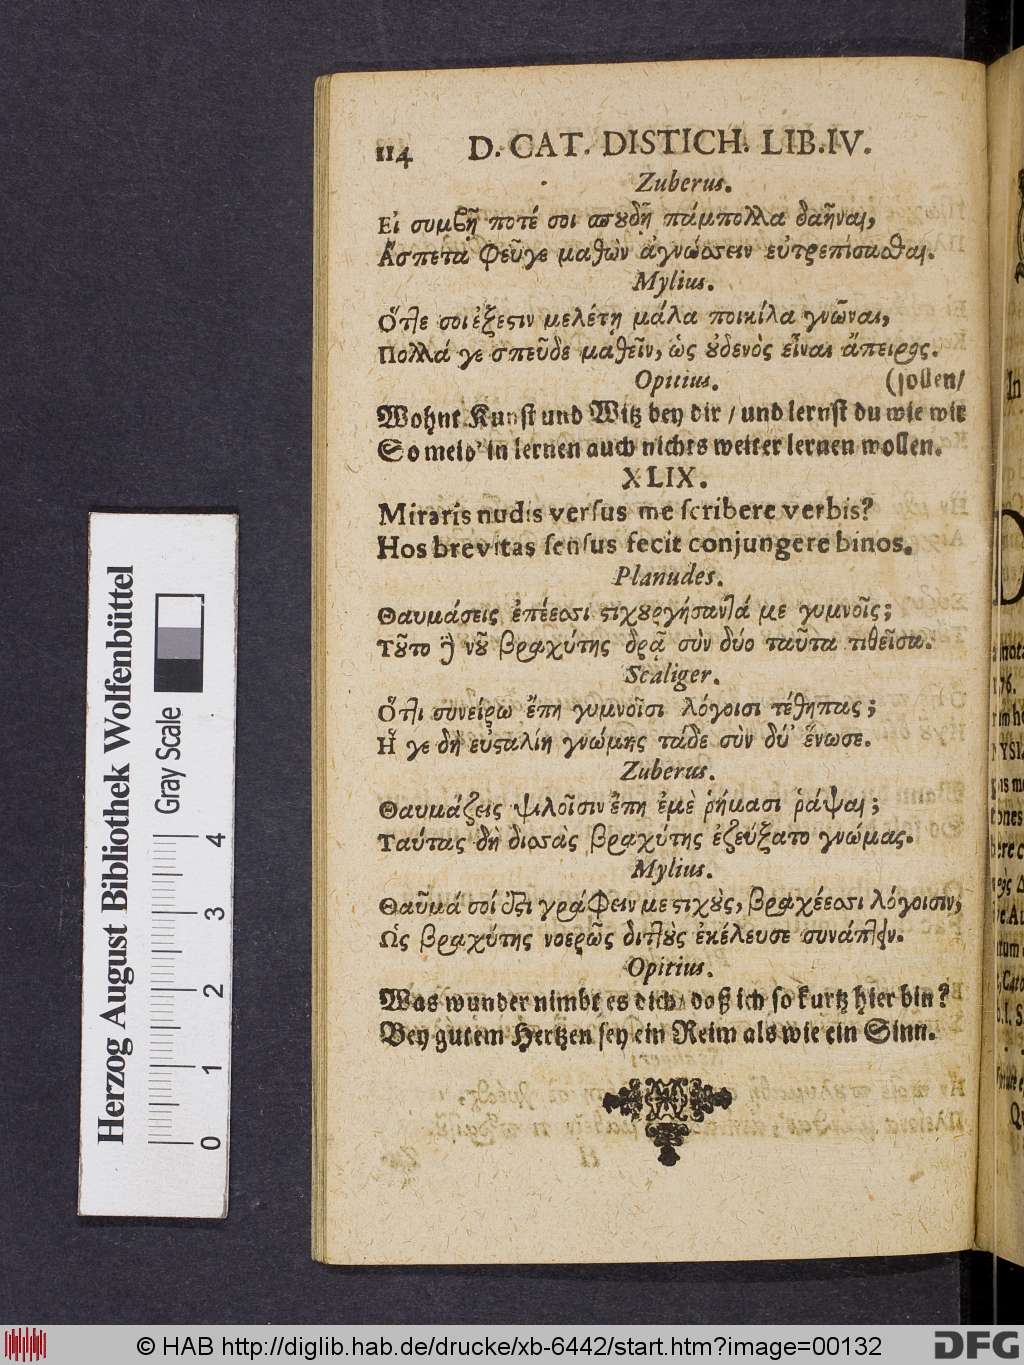 114 D. CAT. DISTICH. LIB.IV.
Zuberus.
Εἰ συμβῇ ποτέ σοι σπουδῇ πάμπολλα δαῆναι,
Ἄσπετα φεῦγε μαθὼν ἀγνώοσειν εὐτρεπίσασθαι.
Mylius.
Ὅττε σοι ἐξεστιν μελέτῃ μάλα ποικίλα γνῶναι,
Πολλά γε σπεῦδε μαθεῖν, ὡς οὐδενὸς εἶναι ἄπειρος.
Opitius. (sollen/
Wohnt Kunst und Witz bey dir / und lernst du wie wir
So meid' in lernen auch nichts weiter lernen wollen.
XLIX.
Miraris nudis versus me scribere verbis?
Hos brevitas sensus fecit conjungere binos.
Planudes.
Θαυμάσεις ἐπέεσσι στιχουργήσαντά με γυμνοῖς;
Τοῦτο νοῦ βραχύτης δρᾷ σὺν δύο ταῦτα τιθεῖσα.
Scaliger.
Ὅττι συνείρω ἔπη γυμνοῖσι λόγοισι τέθηπας;
Ἥ γε δὴ εὐσταλίη γνώμης τάδε σὺν δύ' ἕνωσε.
Zuberus.
Θαυμάζεις ψιλοῖσιν ἔπη ἐμὲ ῥήμασι ῥάψαι;
Ταύτας δὴ δισσὰς βραχύτης ἐζεύξατο γνώμας.
Mylius.
Θαῦμά σοί ἐστι γράφειν με στιχοὺς, βραχέεσσι λόγοισιν;
Ὡς βραχύτης νοερῶς διττοὺς ἐκέλευσε συνάπτειν.
Opitius.
Was wunder nimbt es dich / doß ich so kurtz hier bin?
Bey gutem Hertzen sey ein Reim als wie ein Sinn.
Herzog August Bibliothek Wolfenbüttel
Gray Scale
0 1 2 3 4
© HAB http://diglib.hab.de/drucke/xb-6442/start.htm?image=00132
DFG